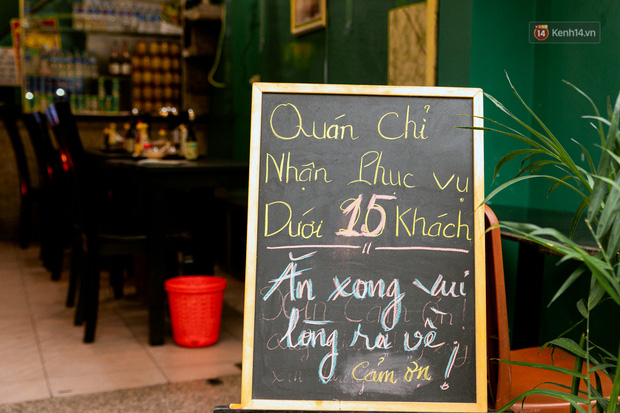 14 Kenh14.vn
Quán Chỉ
Nhận Phục vụ
Dưới 15 Khách
Ăn xong vui
lòng ra về !
Cảm ơn